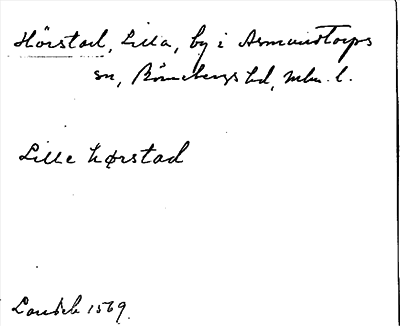 Hörstad, Lilla, by i Asmundtorps
sn, Rönnebergs hd, Mlm. l.
Lille Hørstad
Landeb 1569.